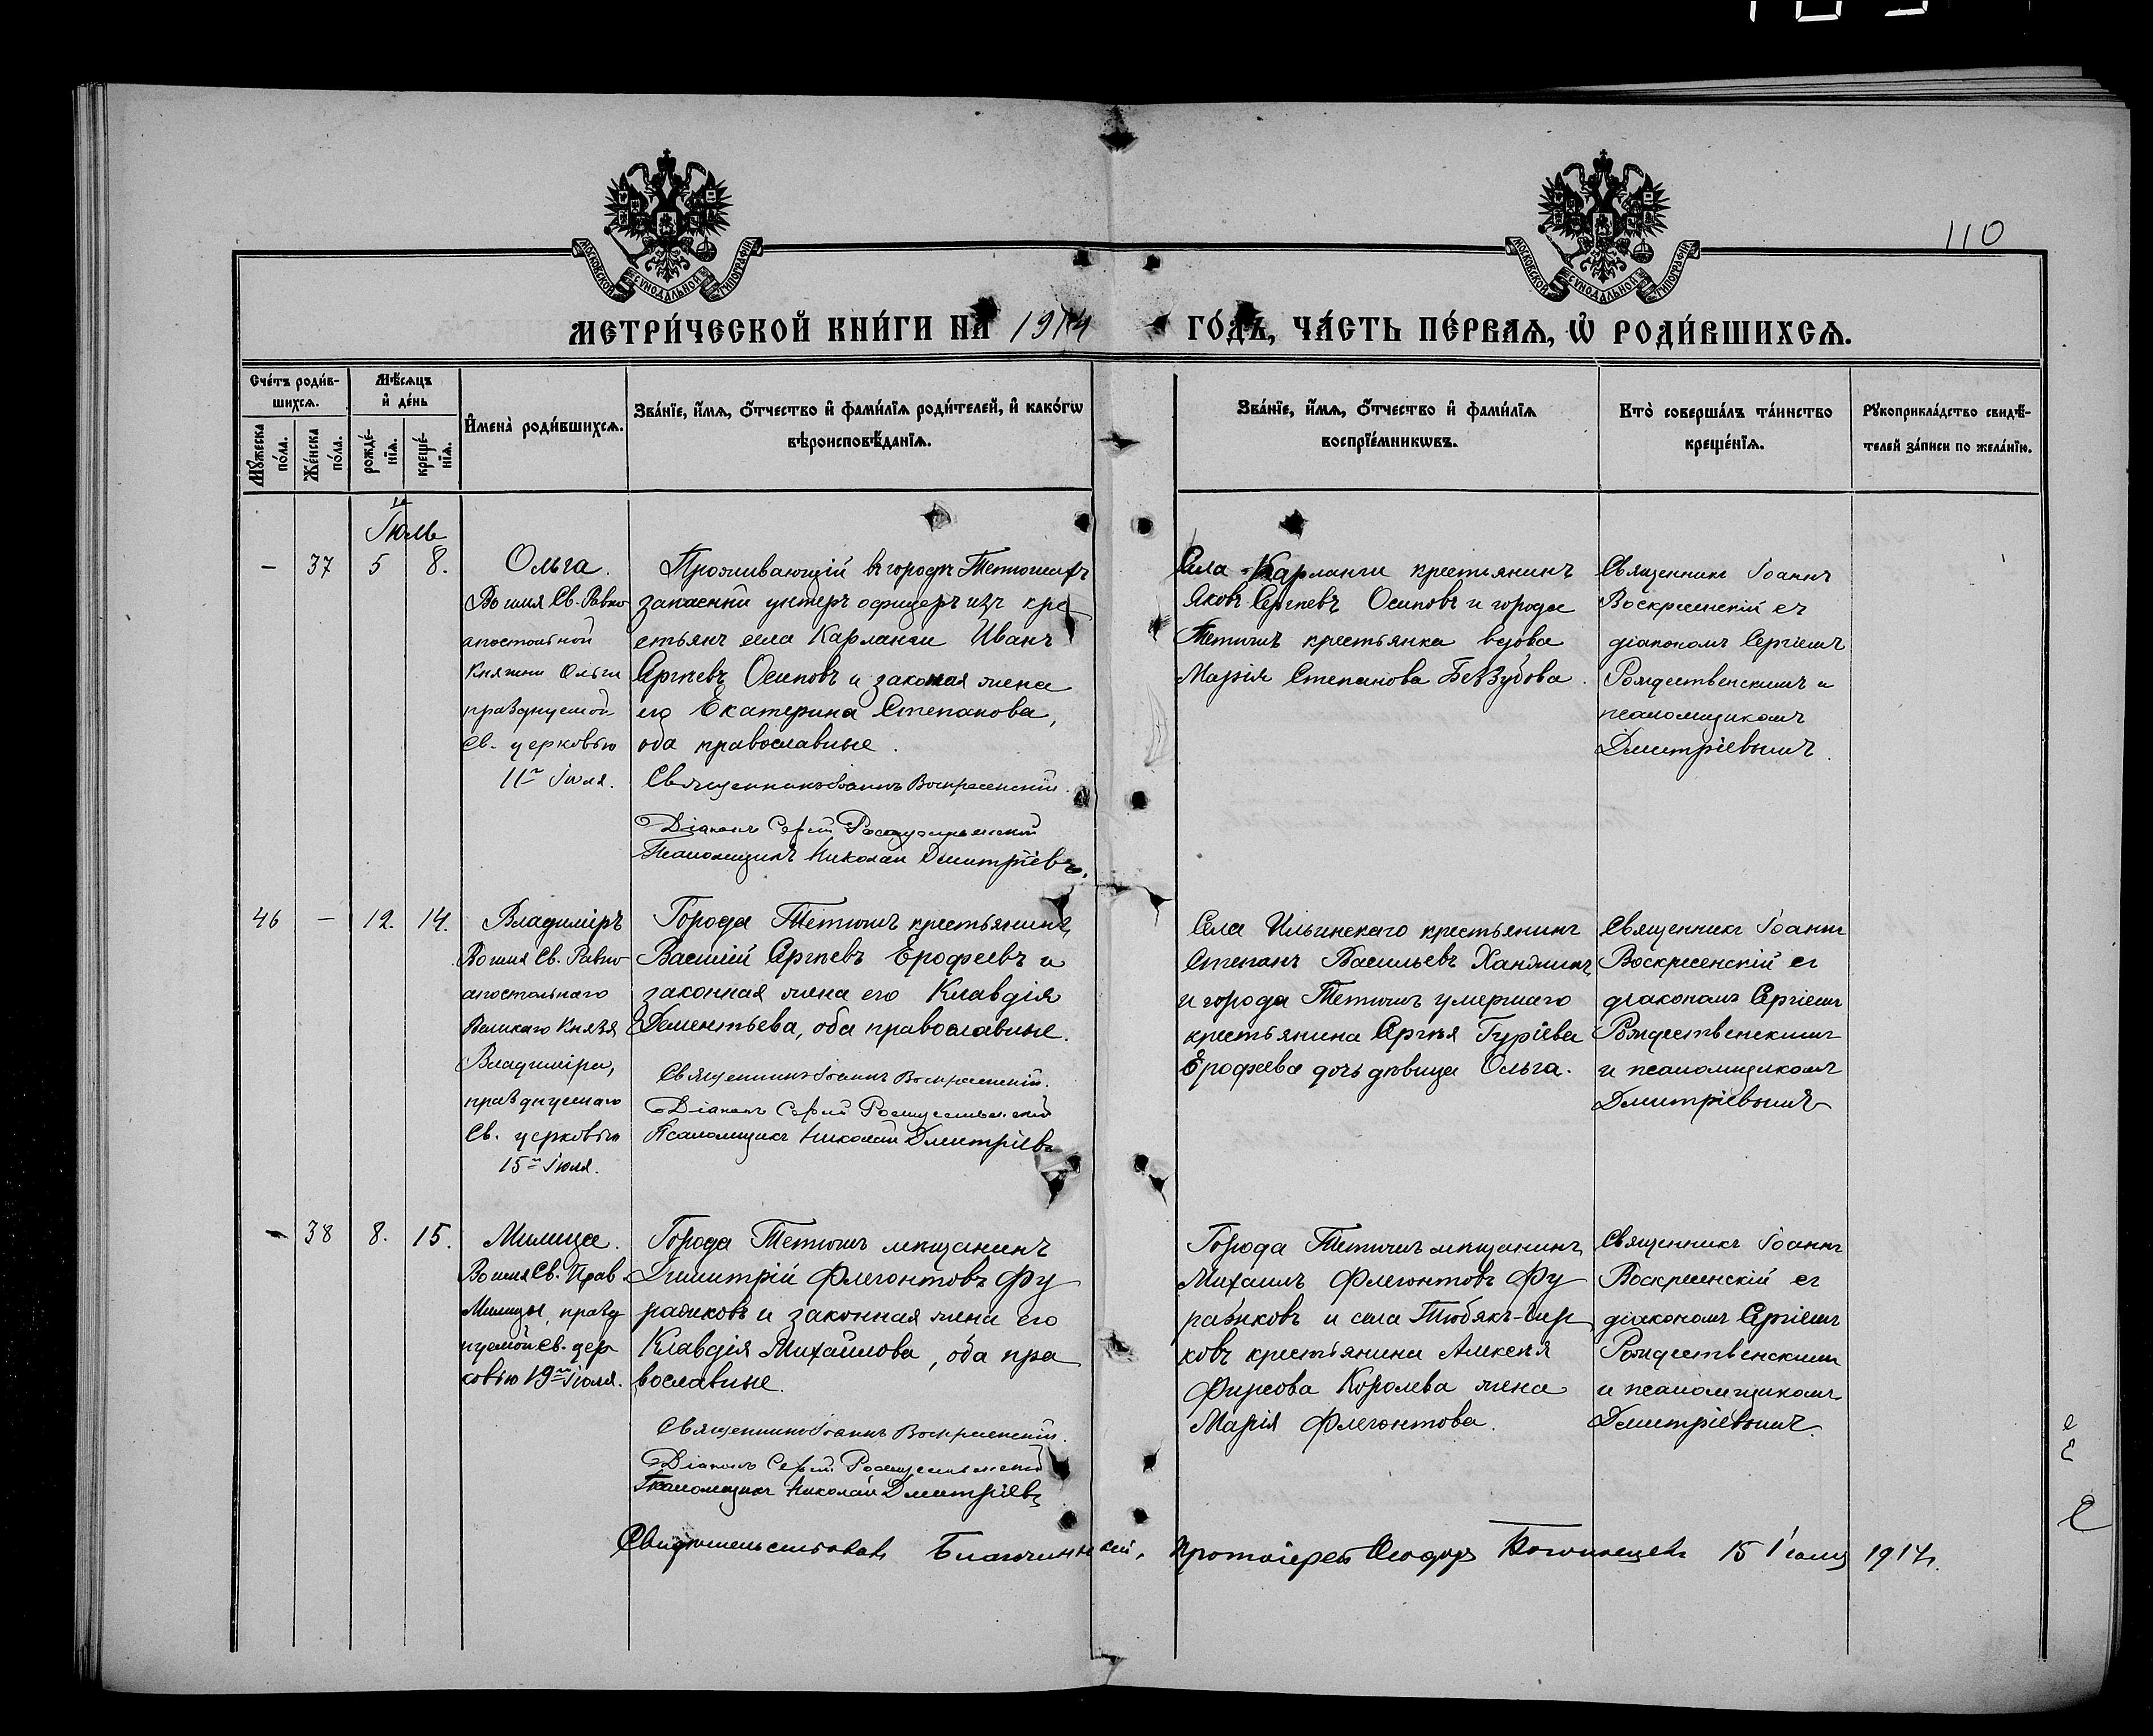 110
МОСКОВСКОЙ СУНОДАЛЬНОЙ ТИПОГРАФІИ
МОСКОВСКОЙ СУНОДАЛЬНОЙ ТИПОГРАФІИ
МЕТРИ́ЧЕСКОЙ КНИ́ГИ НА 1914 ГО́ДЪ, ЧА́СТЬ ПЕ́РВАѦ, Ѡ҆ РОДИ́ВШИХСѦ.
Сче́тъ роди́в-
шихсѧ.
Мꙋ́жеска по́ла.
Же́нска по́ла.
Мѣ́сѧцъ
и҆ де́нь
рожде́-
нїѧ.
креще́-
нїѧ.
И҆мена̀ роди́вшихсѧ.
Зва́нїе, и҆́мѧ, ѻ҆́тчество и҆ фами́лїѧ роди́телей, и҆ како́гѡ
вѣроисповѣ́данїѧ.
Зва́нїе, и҆́мѧ, ѻ҆́тчество и҆ фами́лїѧ
воспрїе́мникѡвъ.
Кто̀ соверша́лъ та́инство
креще́нїѧ.
Рꙋкоприкла́дство свидѣ́-
телей за́писи по жела́нїю.
Іюль
— 37 5 8.
Ольга.
Во имя Св. Равно
апостольной
Княгини Ольги
празднуемой
Св. церковью
11го Іюля.
Проживающій въ городѣ Тетюшахъ
запасный унтеръ офицеръ изъ кре
стьянъ села Карланги Иванъ
Сергѣевъ Осиповъ и законая жена
его Екатерина Степанова,
оба православные.
Священникъ Іоаннъ Воскресенскій.
Діаконъ Сергій Рождественскій
Псаломщикъ Николай Дмитріевъ.
Села Карланги крестьянинъ
Яковъ Сергѣевъ Осиповъ и города
Тетюшъ крестьянка вдова
Марія Степанова Беззубова.
Священникъ Іоаннъ
Воскресенскій съ
діакономъ Сергіемъ
Рождественскимъ и
псаломщикомъ
Дмитріевымъ.
46 — 12. 14.
Владиміръ
Во имя Св. Равно
апостольнаго
Великаго Князя
Владиміра,
празднуемаго
Св. церковью
15го Іюля.
Города Тетюшъ крестьянинъ
Василій Сергѣевъ Ерофеевъ и
законная жена его Клавдія
Дементьева, оба православные.
Священникъ Іоаннъ Воскресенскій.
Діаконъ Сергій Рождественскій
Псаломщикъ Николай Дмитріевъ
Села Ильинскаго крестьянинъ
Степанъ Васильевъ
и города Тетюшъ умершаго
крестьянина Сергѣя Гуріева
Ерофеева дочь дѣвица Ольга.
Священникъ Іоаннъ
Воскресенскій съ
діакономъ Сергіемъ
Рождественскимъ
и псаломщикомъ
Дмитріевымъ
— 38 8. 15.
Милица.
Во имя Св. Прав.
Милицы, празд
нуемой Св. цер
ковью 19го Іюля.
Города Тетюшъ мѣщанинъ
Димитрій Флегонтовъ Фу
ражковъ и законная жена его
Клавдія Михайлова, оба пра
вославные.
Священникъ Іоаннъ Воскресенскій.
Діаконъ Сергій Рождественскій
Псаломщикъ Николай Дмитріевъ
Города Тетюшъ мѣщанинъ
Михаилъ Флегонтовъ Фу
ражковъ и села Тюбякъ-Чир
ковъ крестьянина Алексѣя
Фирсова Королева жена
Марія Флегонтова.
Священникъ Іоаннъ
Воскресенскій съ
діакономъ Сергіемъ
Рождественскимъ
и псаломщикомъ
Дмитріевымъ.
Свидѣтельствовалъ Благочинный, Протоіерей Ѳеодоръ 15 Іюля 1914г.